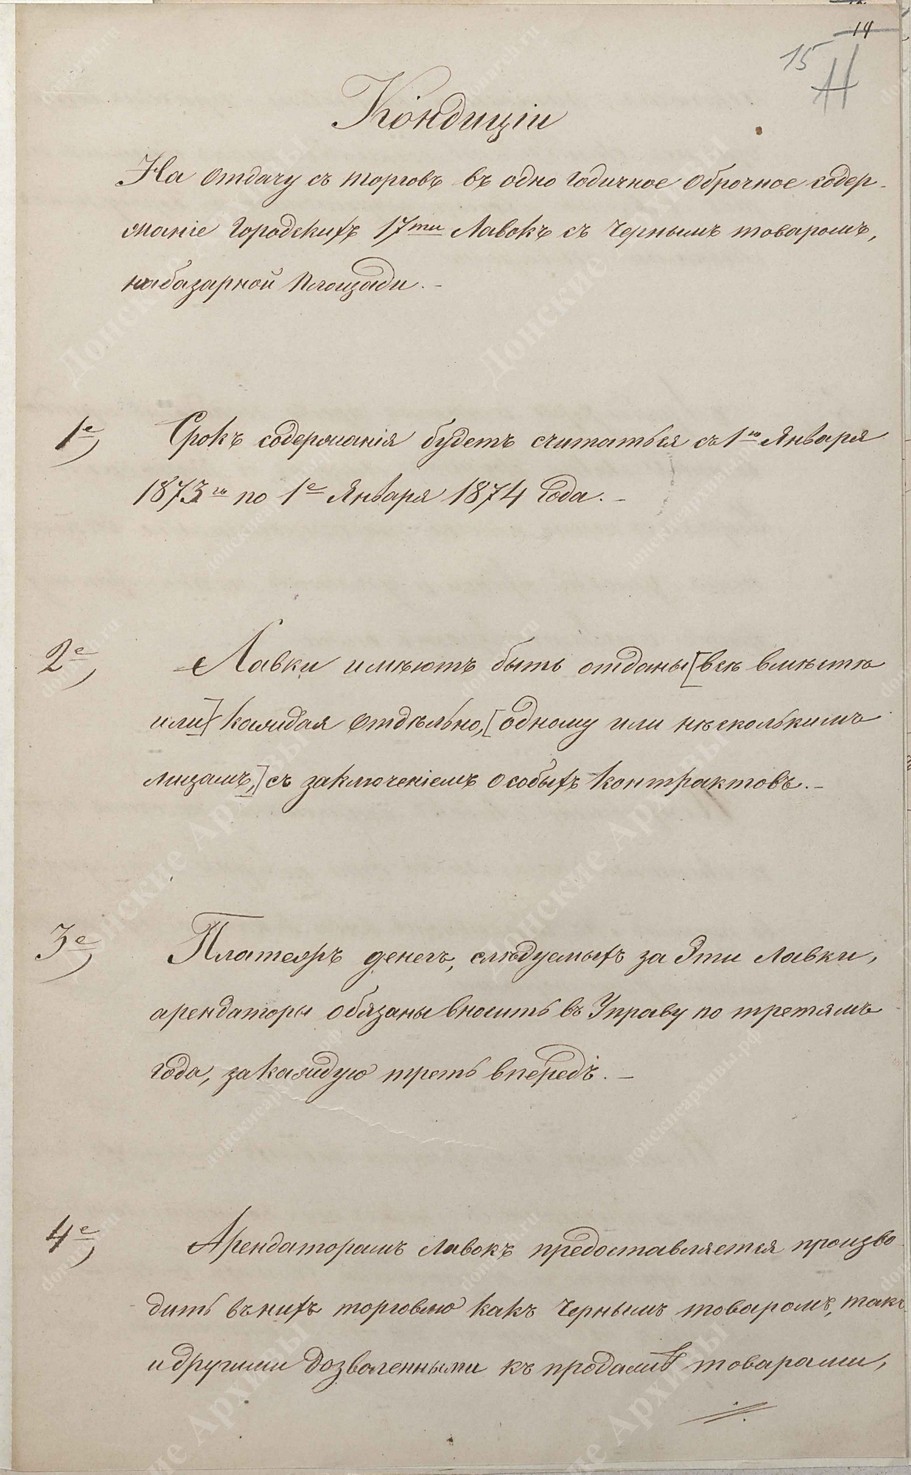 14
15
Кондиціи
На отдачу съ торговъ въ одно годичное оброчное содер-
жаніе Городскихъ 17ти Лавокъ съ Чернымъ товаромъ,
на базарной Площади. -
1е) Срокъ содержанія будетъ считаться съ 1го Января
1873го по 1е Января 1874 года. -
2е) Лавки имѣютъ быть отданы [всѣ вмѣстѣ
или] каждая отдѣльно, [одному или нѣсколькимъ
лицамъ,] съ заключеніемъ особыхъ контрактовъ. -
3е) Платежъ денегъ, слѣдуемыхъ за эти лавки,
арендаторы обязаны вносить въ Управу по третямъ
года, за каждую треть впередъ. -
4е) Арендаторамъ лавокъ предоставляется произво-
дить въ нихъ торговлю какъ Чернымъ товаромъ, такъ
и другими дозволенными къ продажѣ товарами,